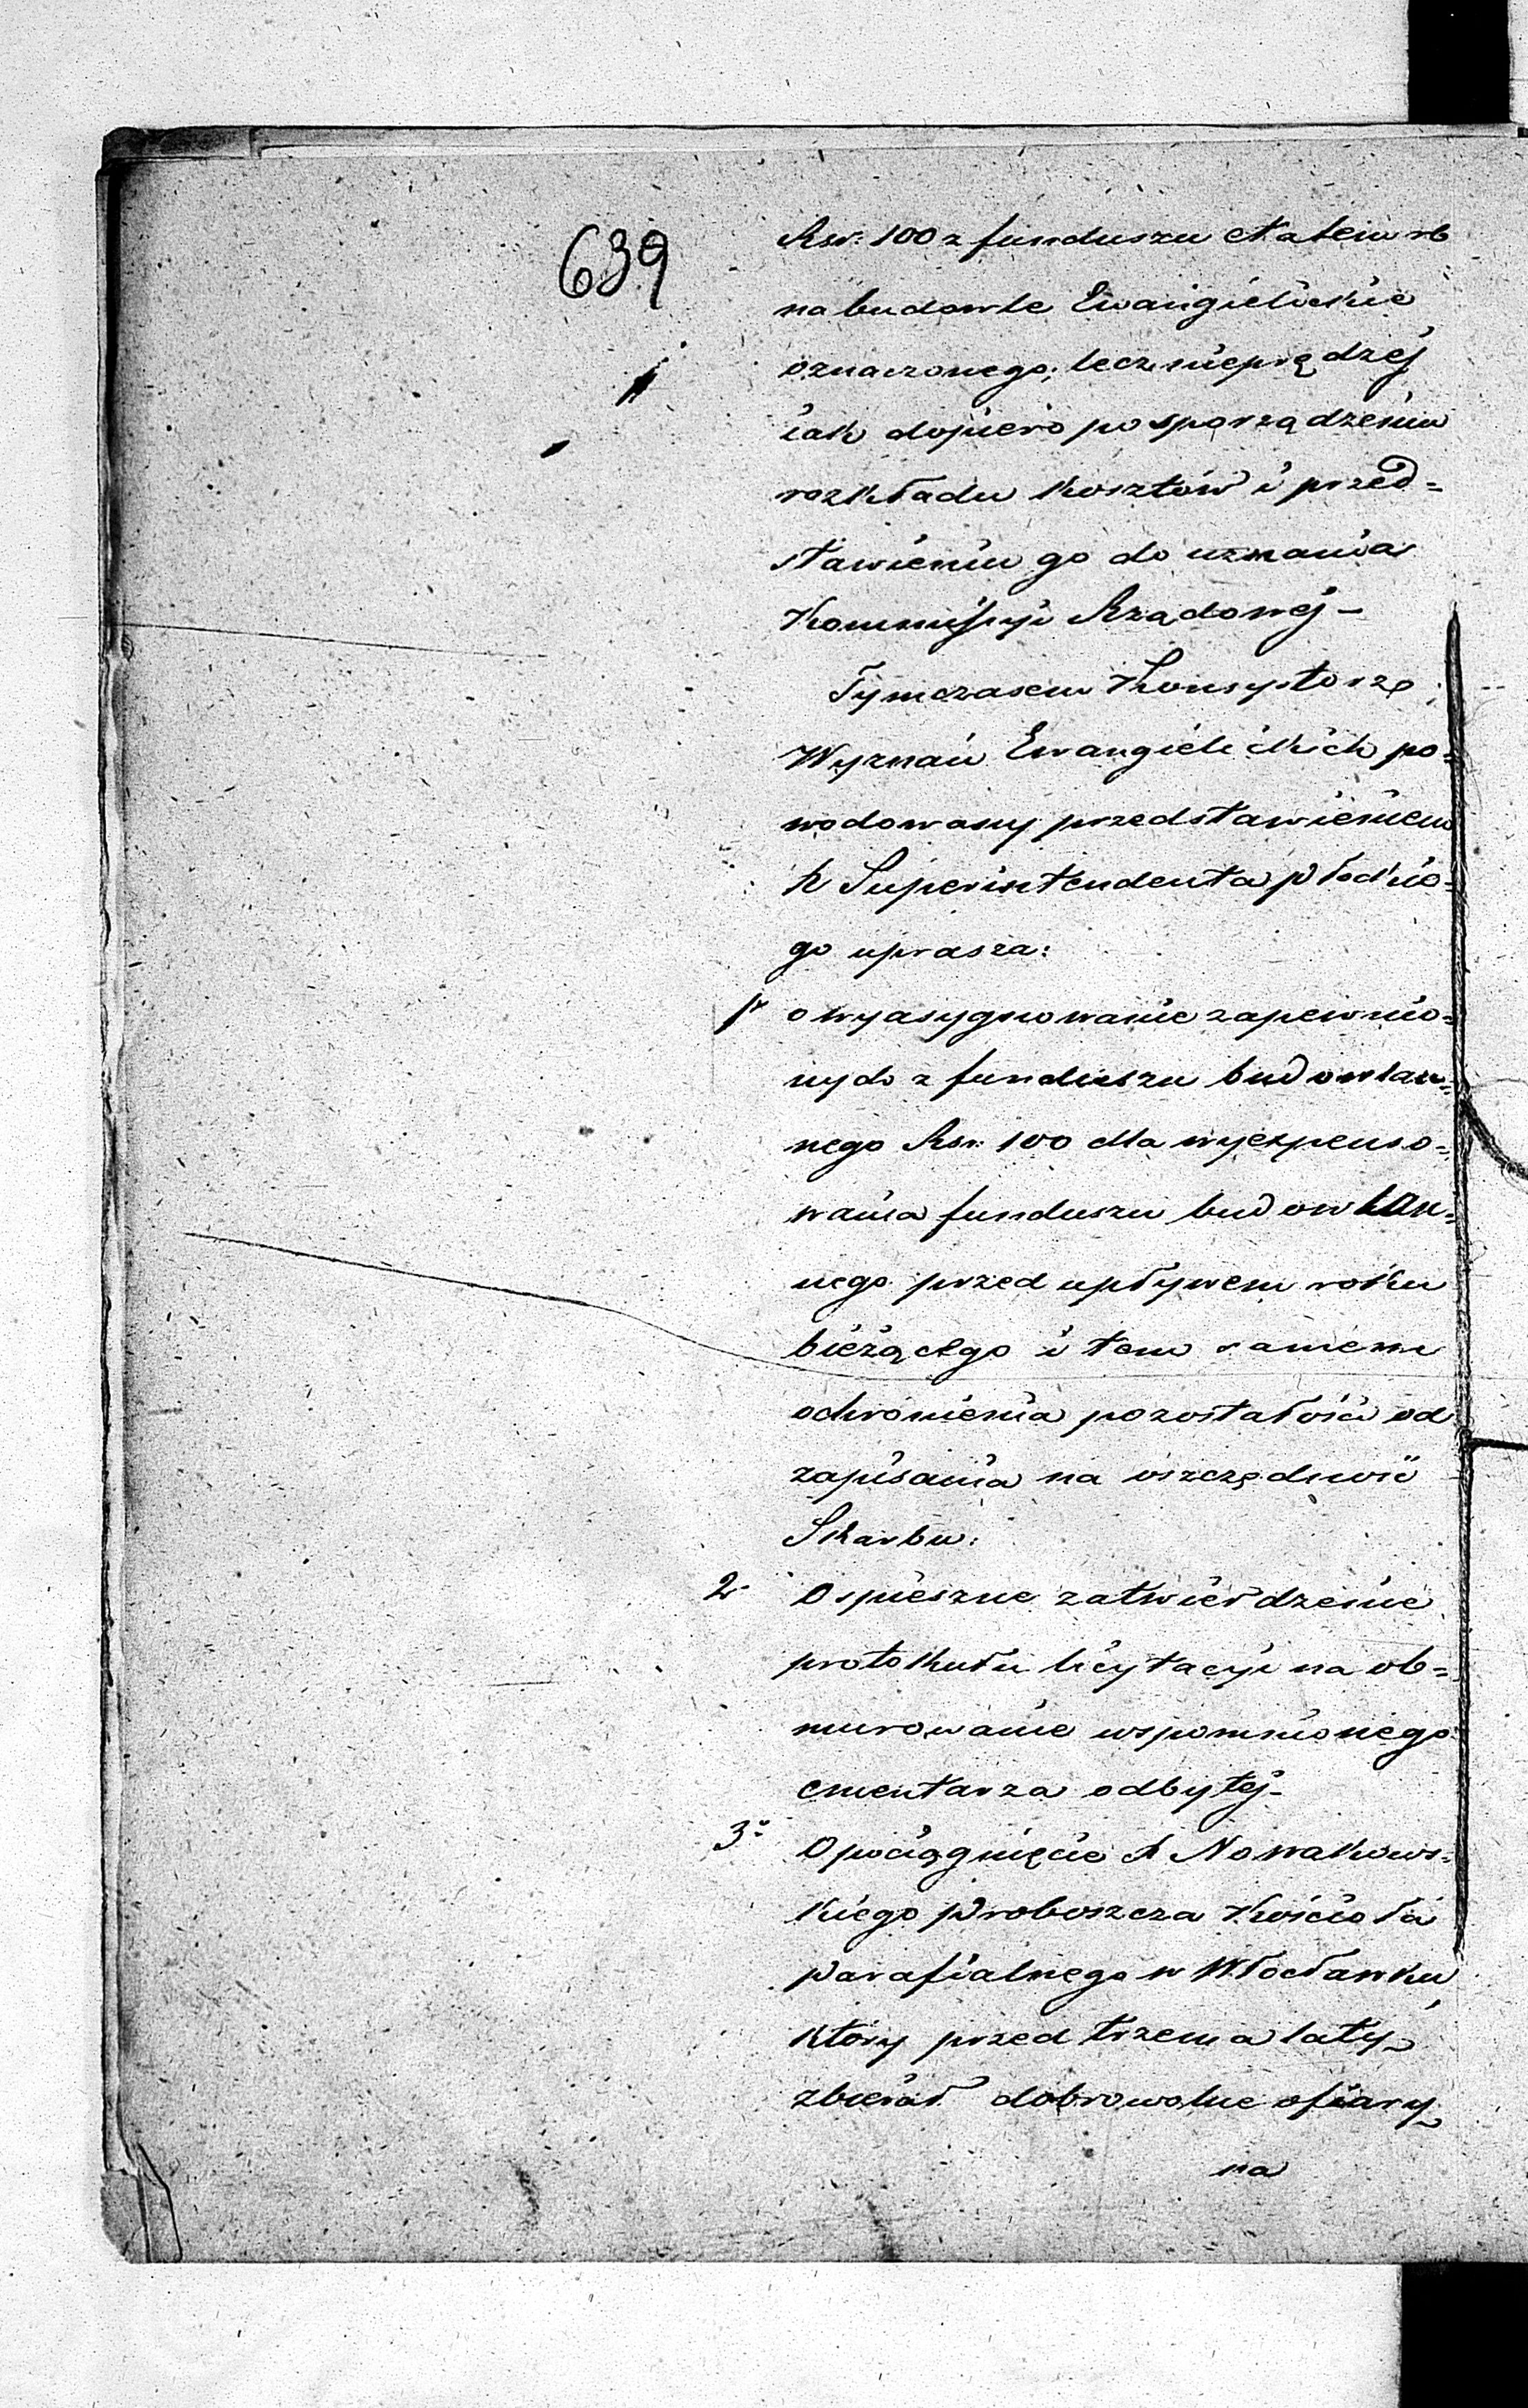 639
Rsr: 100 z funduszu Etatem rb
na budowle Ewangielickie
oznaczonego; lecz nieprędzej
iak dopiero po sporządzeniu
rozkładu kosztów i przed=
stawieniu go do uznania
Kommissyi Rządowej –
Tymczasem Konsystorz
Wyznań Ewangielickich po=
wodowany przedstawieniem
X Superintendenta Płockie=
go uprasza:
1º o wyasygnowanie zapewnio=
nych z funduszu budowlan=
nego Rsr: 100 dla wyexpenso=
wania funduszu budowlan=
nego przed upływem roku
bieżącego i tem samem
ochronienia pozostałości od
zapisania na oszczędność
Skarbu:
2º O spieszne zatwierdzenie
protokułu licytacyi na ob=
murowanie wspomnionego
cmentarza odbytej –
3º O pociągnięcie X Nowakows=
kiego Proboszcza Kościoła
Parafialnego w Włocławku,
który przed trzema laty
zbierał dobrowolne ofiary
na